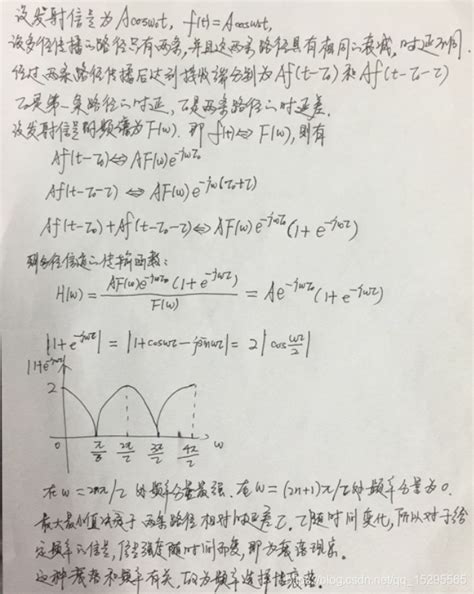 设发射信号为Acosω₀t, f(t)=Acosω₀t,
设多径传播的路径只有两条,并且这两条路径具有相同的衰减,时延不同.
经过两条路径传播后达到接收端分别为Af(t-τ₀)和Af(t-τ₀-τ)
τ₀是第一条路径的时延,τ是两条路径的时延差.
设发射信号的频谱为F(ω).即f(t)⇔F(ω),则有
Af(t-τ₀)⇔AF(ω)e^{-jωτ₀}
Af(t-τ₀-τ)⇔AF(ω)e^{-jω(τ₀+τ)}
Af(t-τ₀)+Af(t-τ₀-τ)⇔AF(ω)e^{-jωτ₀}(1+e^{-jωτ})
则多径信道的传输函数:
H(ω)=\frac{AF(ω)e^{-jωτ₀}(1+e^{-jωτ})}{F(ω)}=Ae^{-jωτ₀}(1+e^{-jωτ})
|1+e^{-jωτ}|=|1+cosωτ-jsinωτ|=2|cos\frac{ωτ}{2}|
|1+e^{-jωτ}|
2
0 π/τ 2π/τ 3π/τ 4π/τ ω
在ω=2nπ/τ的频率分量最强.在ω=(2n+1)π/τ的频率分量为0.
最大最小值决于两条路径相对时延差τ.τ随时间变化,所以对于给
定频率的信号,信号强度随时间而变,即为衰落现象.
这种衰落和频率有关,故为频率选择性衰落.
blog.csdn.net/qq_15295565